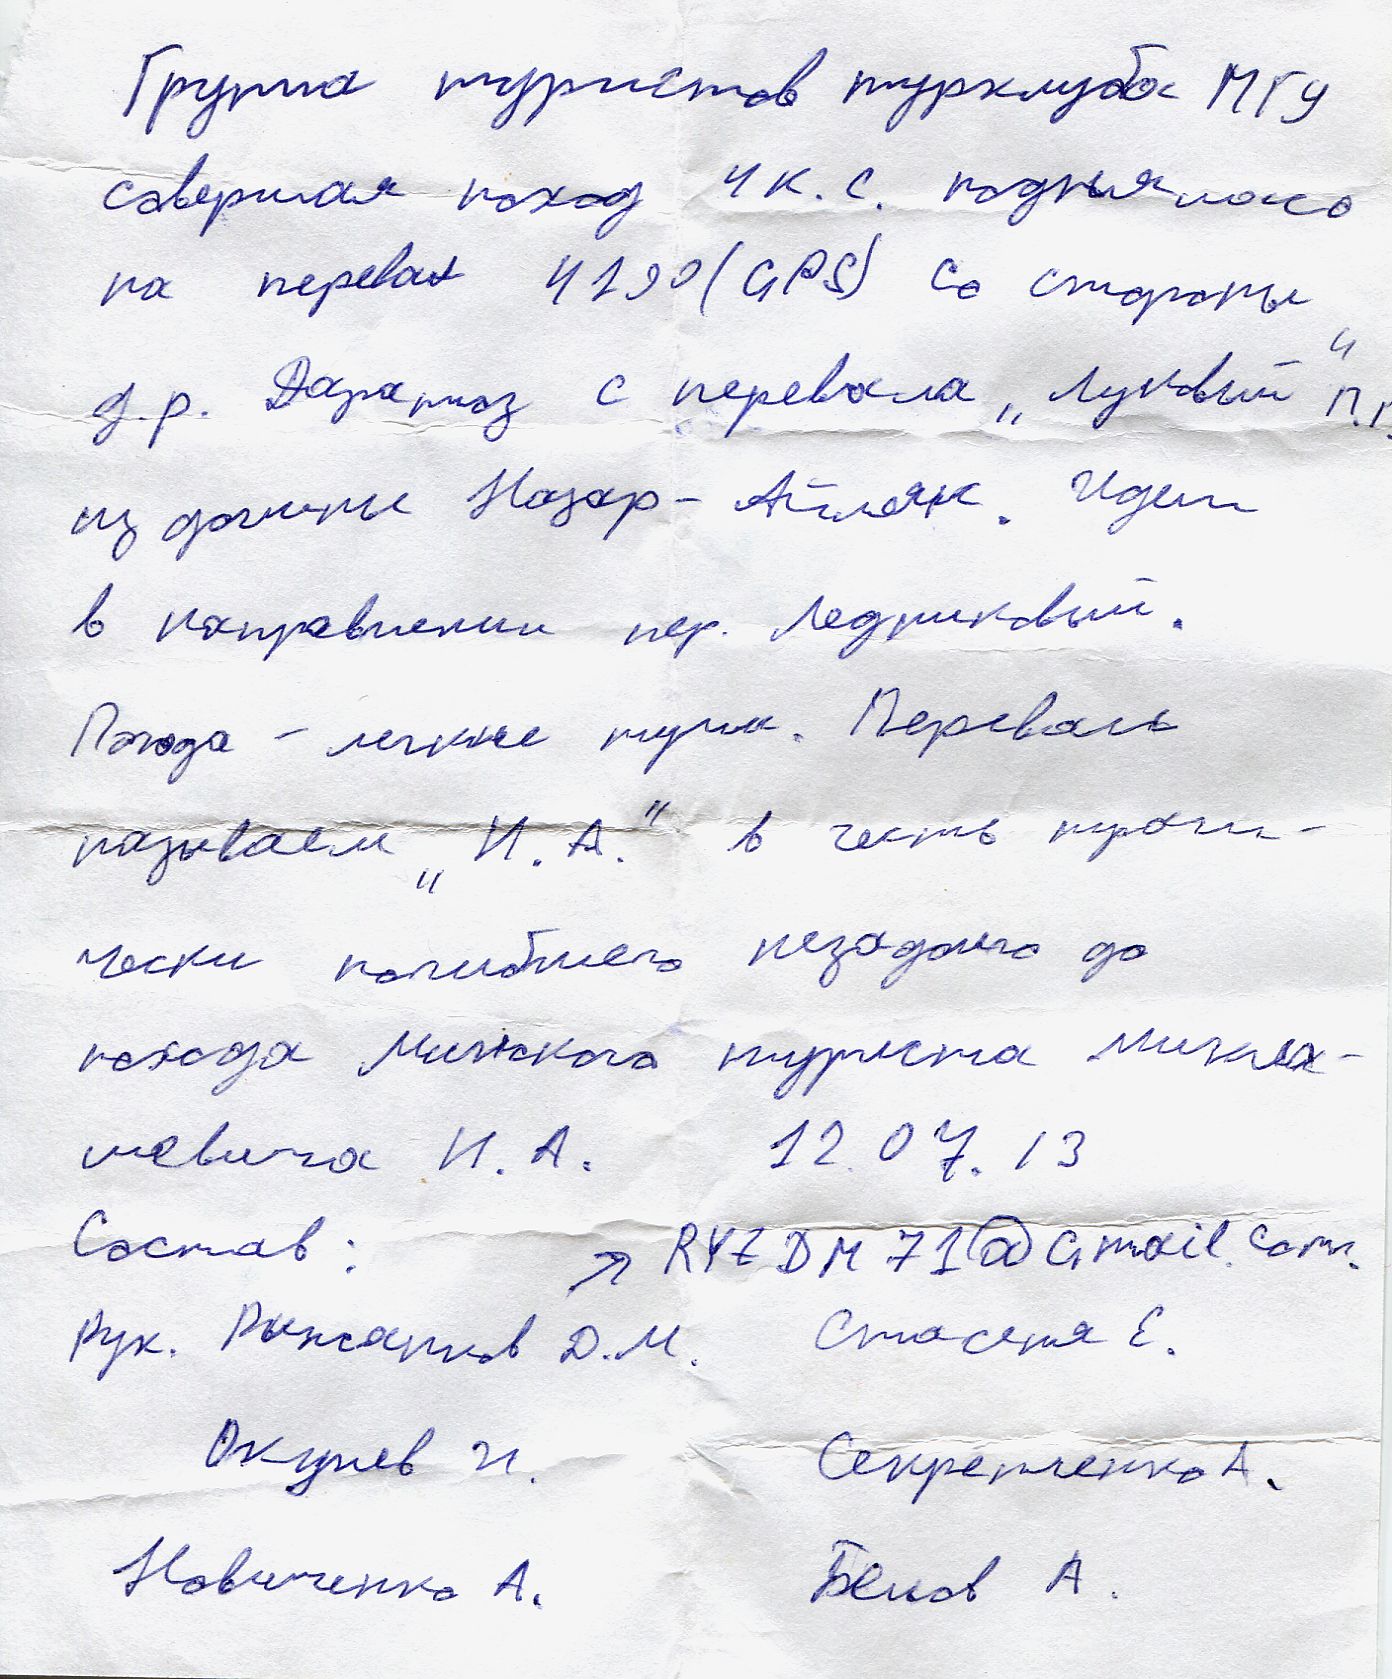 Группа туристов турклуба МГУ
совершая поход 4 к.с. поднялась
на перевал 4190 (GPS) со стороны
д.р. Даратоз с перевала „Луковый" п.р.
из долины Назар-Айляк. Идем
в направлении пер. Ледниковый.
Погода - легкие тучи. Перевал
называем „И.А." в честь траги-
чески погибшего незадолго до
похода Минского туриста
шевича И.А. 12.07.13
Состав: → RYZDM71@Gmail.com.
Рук. Рыжанков Д.М. Стасеня Е.
Окунев И. Секретченко А.
Новиченко А. Белов А.